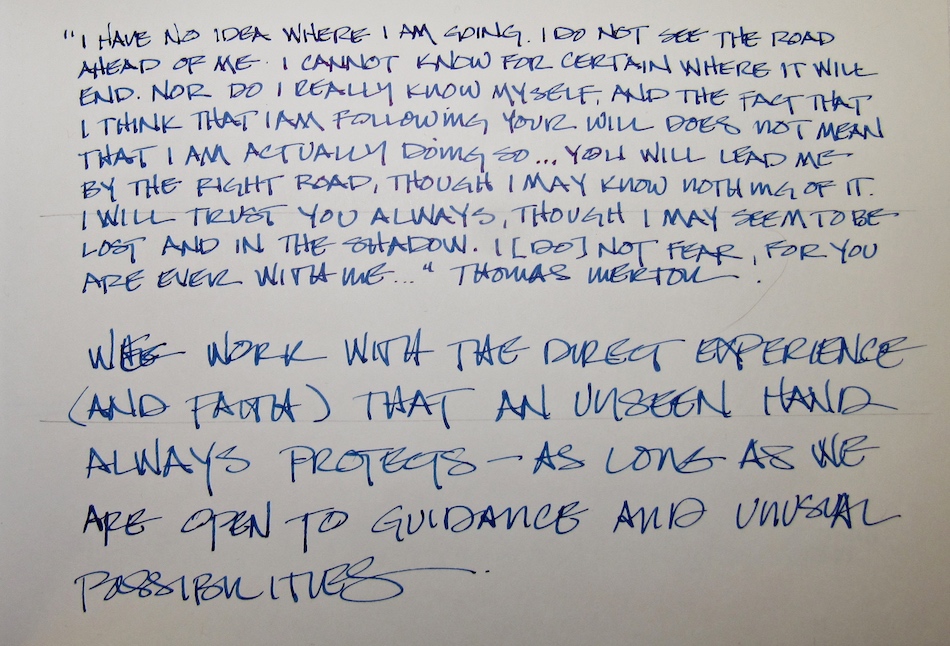 "I HAVE NO IDEA WHERE I AM GOING. I DO NOT SEE THE ROAD
AHEAD OF ME. I CANNOT KNOW FOR CERTAIN WHERE IT WILL
END. NOR DO I REALLY KNOW MYSELF, AND THE FACT THAT
I THINK THAT I AM FOLLOWING YOUR WILL DOES NOT MEAN
THAT I AM ACTUALLY DOING SO... YOU WILL LEAD ME
BY THE RIGHT ROAD, THOUGH I MAY KNOW NOTHING OF IT.
I WILL TRUST YOU ALWAYS, THOUGH I MAY SEEM TO BE
LOST AND IN THE SHADOW. I [DO] NOT FEAR, FOR YOU
ARE EVER WITH ME..." THOMAS MERTON.
WE WORK WITH THE DIRECT EXPERIENCE
(AND FAITH) THAT AN UNSEEN HAND
ALWAYS PROTECTS – AS LONG AS WE
ARE OPEN TO GUIDANCE AND UNUSUAL
POSSIBILITIES.